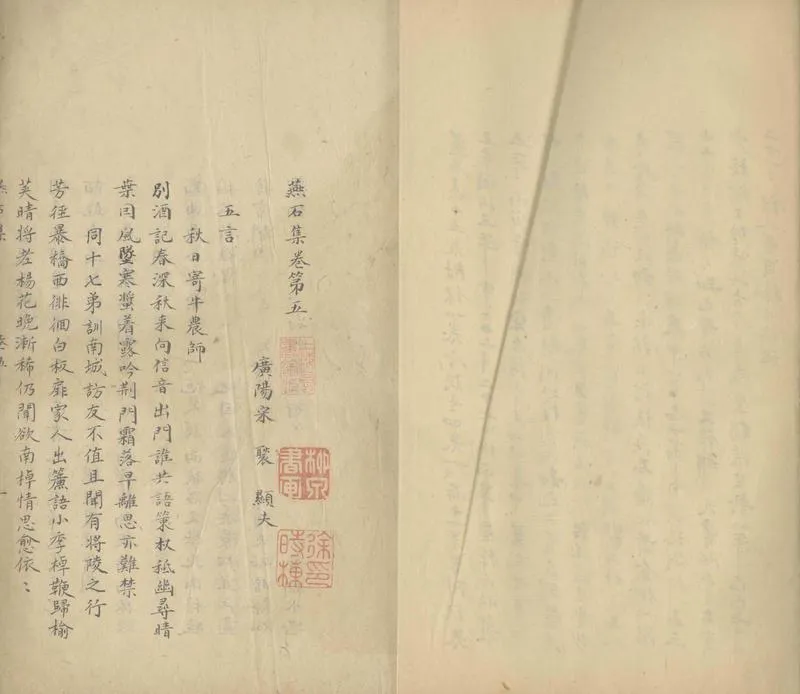 燕石集卷第五
廣陽宋褧顯夫
五言
秋日寄牛農師
別酒記春深秋来向信音出門誰共語策杖秪幽尋晴
葉因風墜寒螿着露吟荆門霜落早離思亦難禁
同十七弟訓南城訪友不值且聞有將陵之行
芳徑暴橋西徘徊白板扉家人出簾語小李棹鞭歸榆
莢晴将老楊花晚漸稀仍聞欲南棹情思愈依〻
燕石集 卷五 一
柳泉書畫
徐時棟印